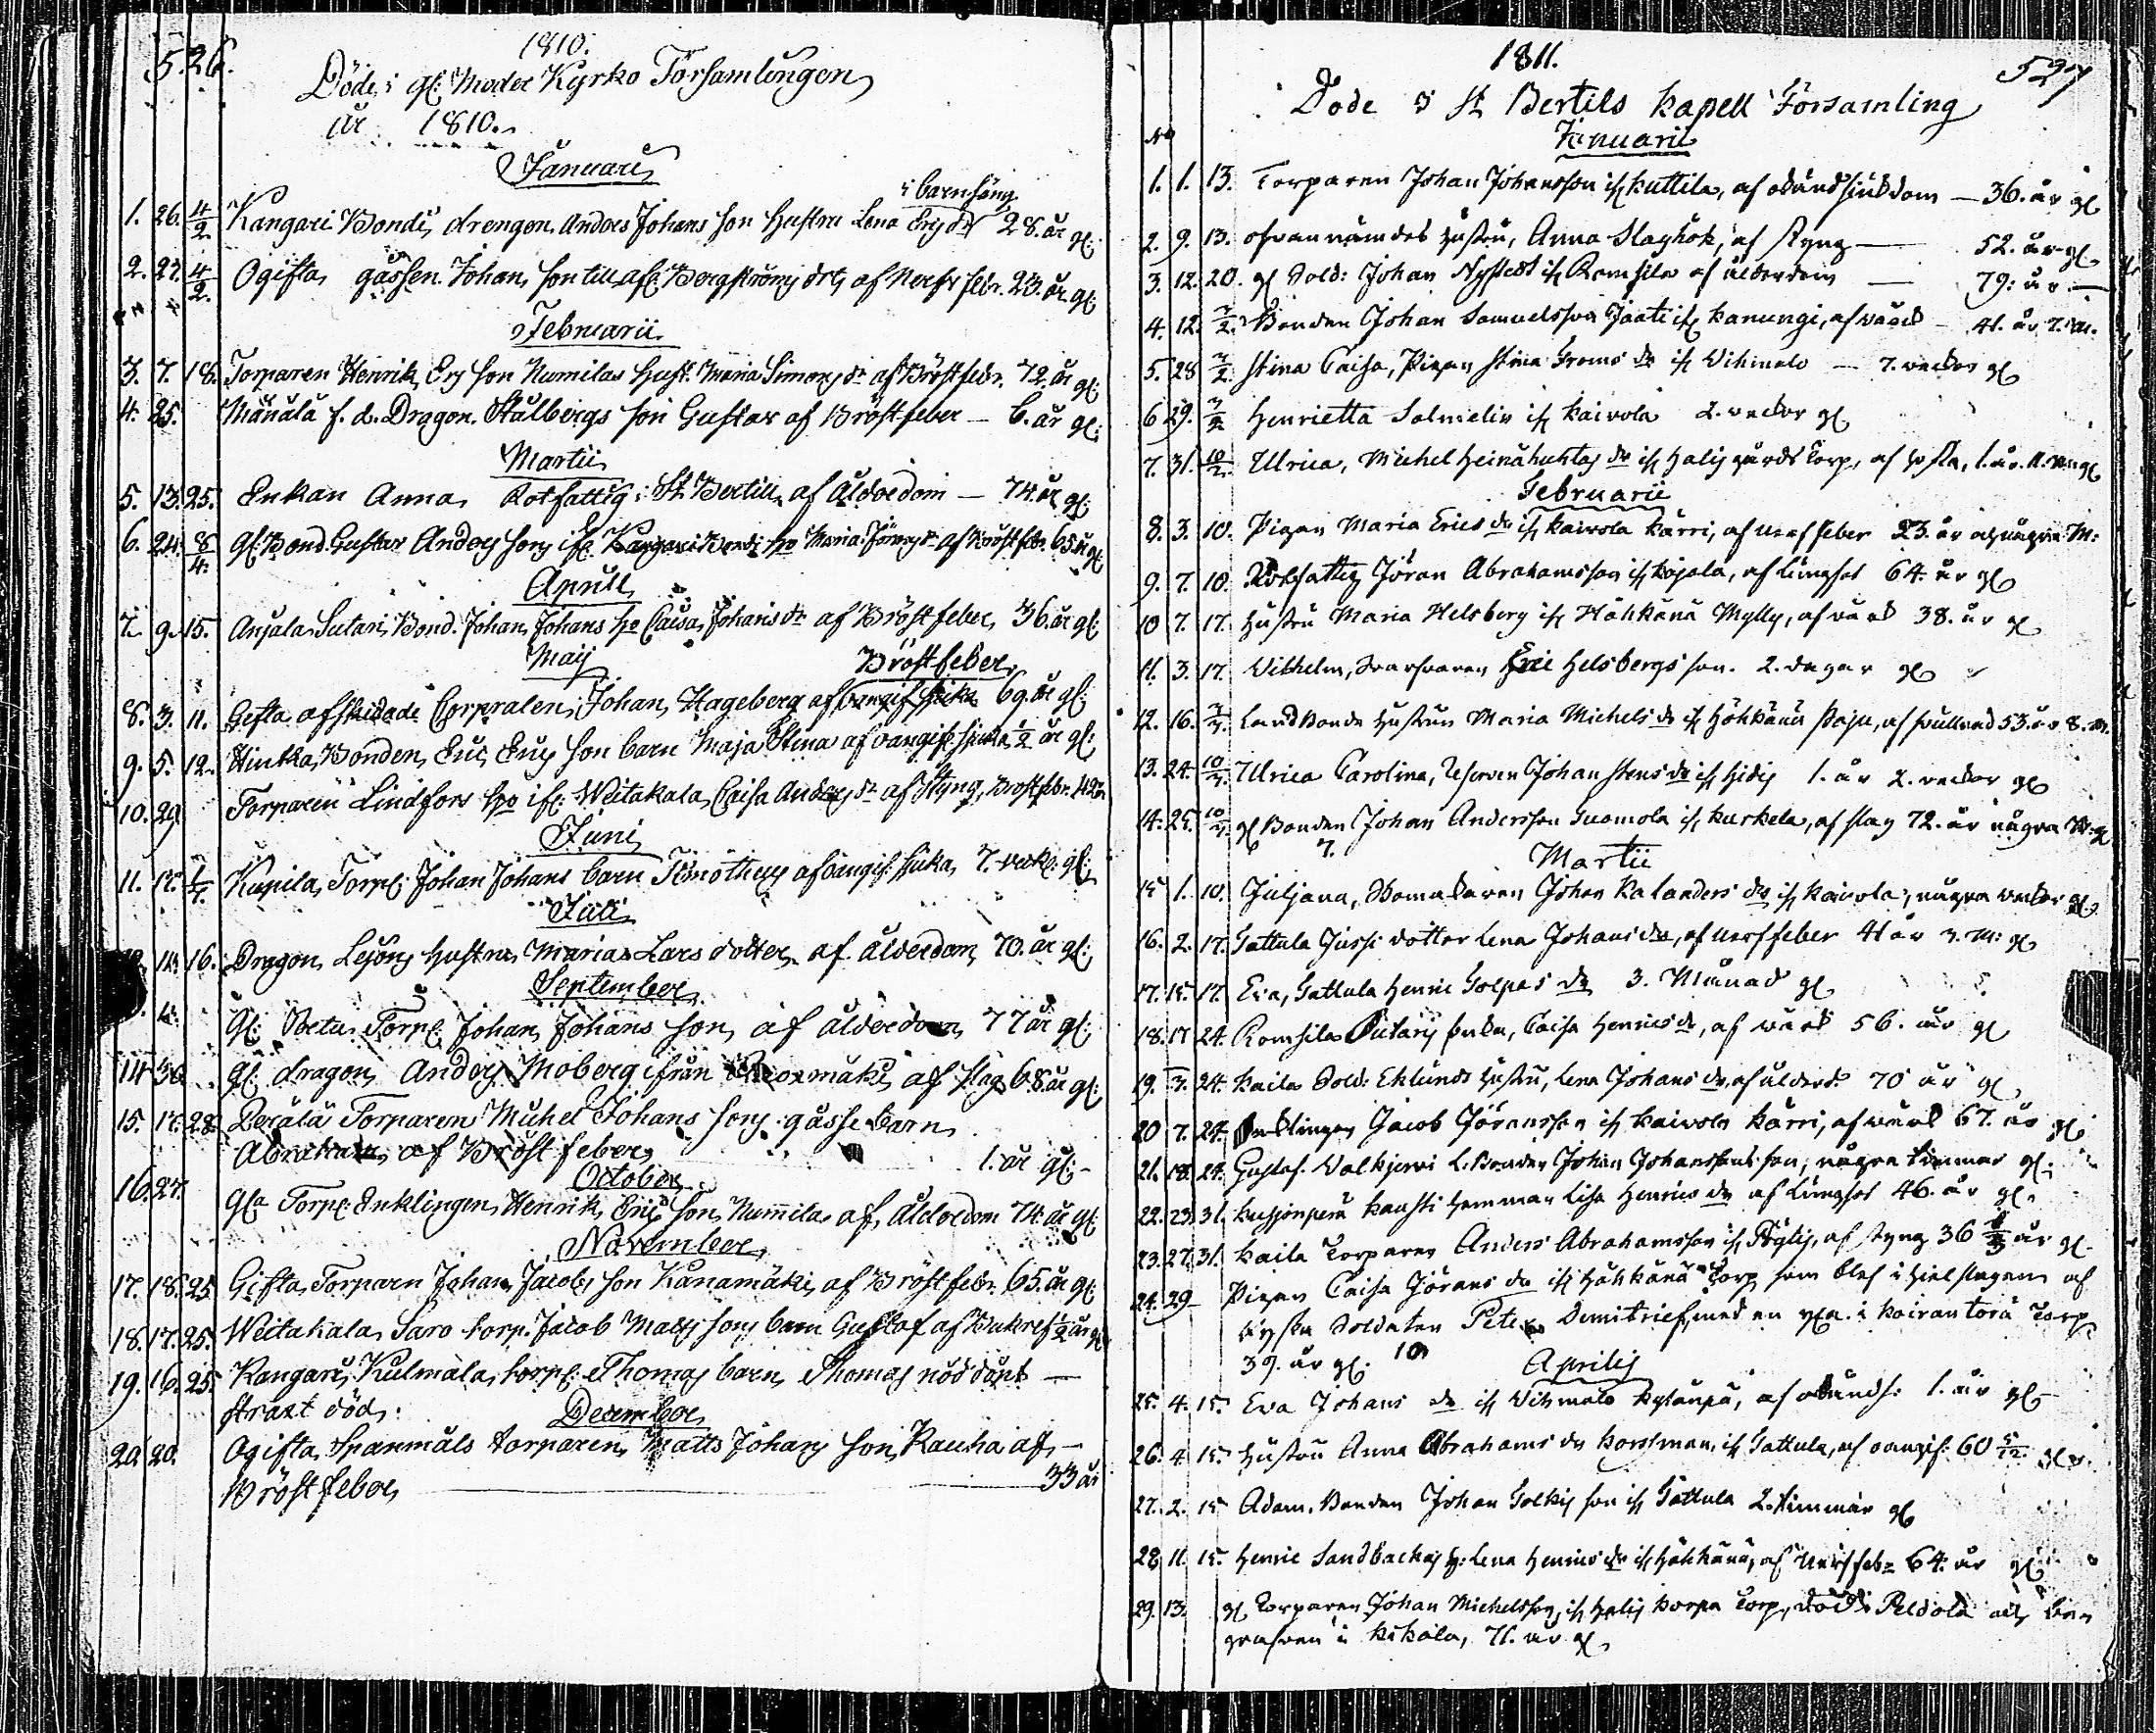 526.
1810.
Döde i gl: Moder Kyrko Församlingen
år 1810.
Januari
i barnsäng
1. 26. 4/2 Kangari Bondi drengen Anders Johans son hustru Lena Ericsdr 28. år gl:
2. 27. 4/2. Ogifta gåssen Johan, son till Bergströms af Nerffeber. 23. år gl:
Februarii
3. 7. 18. Torparen Henrik Ers son Numilas hust. Maria Simonsdr af Bröstfebr. 72. år gl:
4. 25. Manala f. d. Dragon. Stålbergs son Gustav af Bröstfeber — 6. år gl:
Martii
5. 13. 25. Enkan Anna, Rotfattig i St. Bertils, af Ålderdom — 74. år gl:
6. 24. 8/4. Gl: Bond. Gustav Anders sons Maria af Bröstfbr. 65. år gl
Aprill
7. 9. 15. Anjala Sutari Bond. Johan Johans ho Caisa Johansdr af Bröstfeber, 36. år gl:
Maij
Bröstfeber
8. 3. 11. Gifta afskedade Corporalen Johan Hageberg af 69. år gl:
9. 5. 12. Hinka Bonden Eric Erics son barn Maja Stina af oangif. siuka 1/2 år gl:
10. 29. Torparen Lindfors ho if: Weitakala, Caisa Andersdr af Styng, Bröstfbr.
Juni
11. 17. Kupila, Torp: Johan Johans barn Timotheus af oangif. siuka, 7. veck: gl:
Juli
16. Dragon Lejons hustru Maria Lars dotter af ålderdom 70. år gl:
September
Gl: Torp: Johan Johans son af ålderdom 77 år gl:
14 30 gl: dragon Anders Moberg ifrån af slag 68. år gl:
15. 17. 28. Perälä Torparen Michel Johans sons gåsse barn
Abraham, af Bröstfeber 1. år gl: -
October
16. 27. Gla Torp: Enklingen Henrik Erics son Numila af Ålderdom 74. år gl:
November
17. 18. 25 Gifta Torparen Johan Jacobs son Kanamäki af Bröstfebr. 65. år gl:
18. 17. 25. Weitakala Saro torp. Jacob Matts sons barn Gustaf af 1/2 år gl
19. 16. 25. Kangari, Kulmala, torp: Thomas barn Thomas nöddöpt —
straxt död.
December
20. 20. Ogifta Spanmåls torparen Matts Johans son Rauha af —
Bröstfeber — 33 år
1811.
527
Döde i St Bertils kapell Församling
No
Januarii
1. 1. 13. Torparen Johan Johansson if Kuttila, af okänd siukdom — 36. år gl
2. 9. 13. ofvannämdes hustru, Anna Slaghök, af styng — 52. år gl.
3. 12. 20. gl Sold: Johan Nystedt if Romsila af ålderdom — 79. år —
4. 12. 3/2. Bonden Johan Samuelsson Jaati if Kanungi, af wärk - 41. år 7. M.
5. 28 3/2. Stina Caisa, Pigan Stina Froms dr if Vihmalo — 7. veckor gl
6 29. 3/2 Henrietta Salmelin if Kaivola 2. veckor gl
7. 31. 10/2. Ulrica, Michel Heinähuhtas dr if Halis gårds Torp, af hosta, 1. år. 11. M. gl
Februarii
8. 3. 10. Pigan Maria Erics dr if Kaivola Kärri, af nerffeber 23. år och några M:
9. 7. 10. Rotfattig Jöran Abrahamsson if Kojola, af lungsot 64. år gl
10 7. 17. Hustru Maria Helsberg if Hähkänä Mylly, af värk 38. år gl
11. 3. 17. Vilhelm, Svarfvaren Eric Helsbergs son. 2. dagar gl
12. 16. Landbonde hustrun Maria Michels dr if Hähkänä Paju, af svullnad 53. år 8. m.
13. 24. Ulrica Carolina, Reserven Johan Stens dr if Hidis 1. år 2. veckor gl
14. 25. gl Bonden Johan Andersson Suomola if Kurkela, af slag 72. år några M. gl
7.
Martii
15 1. 10. Juljana, Skomakaren Johan Kalanders dr if Kaivola, några veckor gl
16. 2. 17. Tattula Jussi dotter Lena Johans dr, af nerffeber 41 år 3. M: gl
17. 15. 17. Eva, Tattula Henric Tolpas dr 3. Månad gl
18. 17 24. Romsila Sutaris enka, Caisa Henrics dr, af värk 56. år gl
19. 3. 24. Kaila Sold: Eklunds hustru, Lena Johans dr, af ålderd: 70 år gl
20 7. 24. Enklingen Jacob Jöransson if Kaivola Kärri, af värk 67. år gl
21. 18. 24. Gustaf. Valkjervi L. Bonden Johan Johanssons son, några timmar gl.
22. 23. 31. Kausti Lisa Henrics dr af lungsot 46. år gl.
23. 27. 31. Kaila Torparen Anders Abrahamsson if Pöylis, af styng 36 år gl.
24. 29 Pigan Caisa Jörans dr if Hähkänä Torp som blef ihjelslagen af
ryska Soldaten Peter Demitrief, med en yxa i Koirantora Torp
39. år gl. 10
Aprilis
25. 4. 15. Eva Johans dr if Vihmalo, af okänds: 1. år gl
26. 4. 15. Hustru Anna Abrahams dr Korsman, if Tattula, af oangif: 60 5/12. gl
27. 2. 15 Adam, Bonden Johan Tolkis son if Tattula 2. timmar gl
28. 11. 15. Henric Sandbackas h: Lena Henrics dr if Hähkänä, af Nerffeb: 64. år gl
29. 13. gl Torparen Johan Michelsson, if Halis Korpa Torp, död i Peldola och be-
grafven i Kikala, 71. år gl.